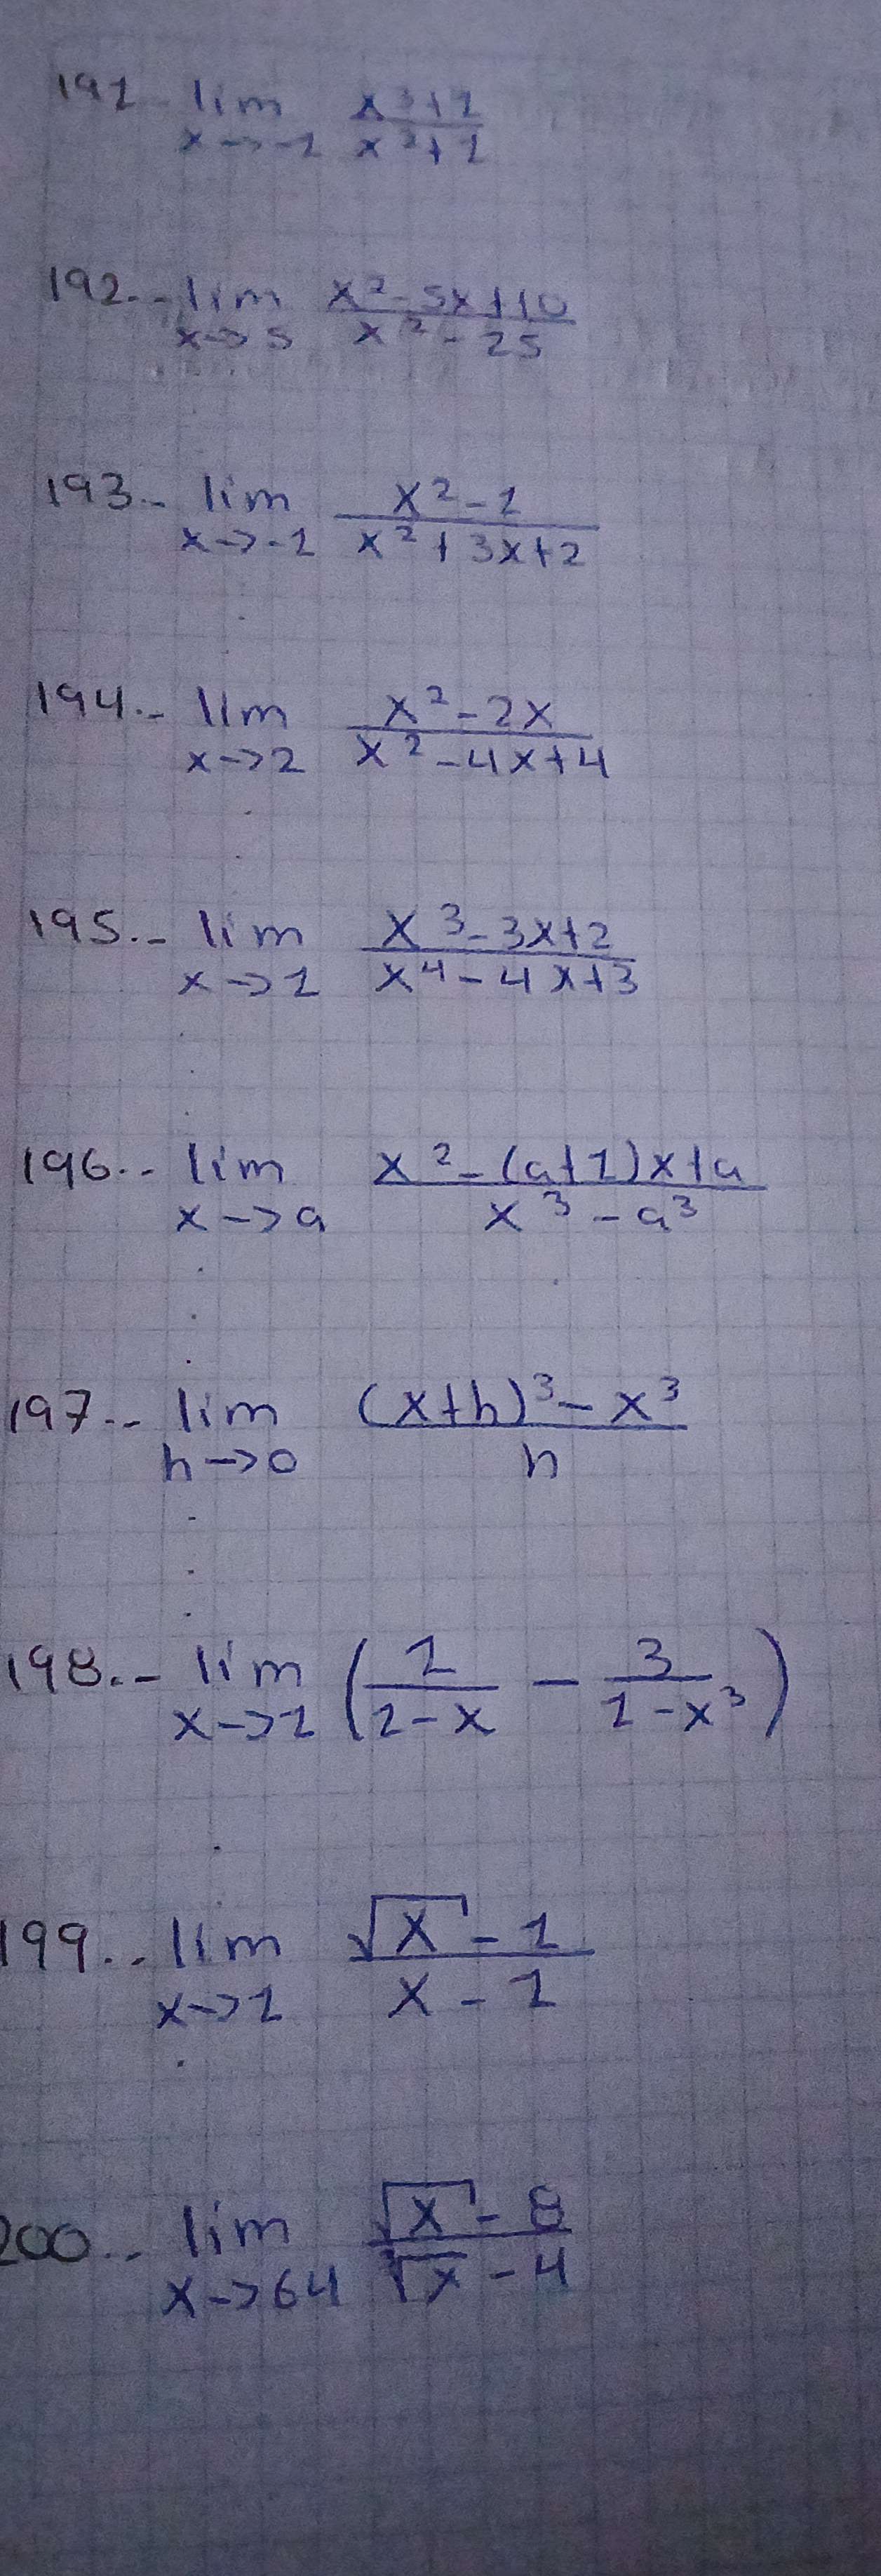 191 lim x³+1
x->-1 x²+1
192.- lim x²-5x+10
x->5 x²-25
193.- lim x²-1
x->-1 x²+3x+2
194.- lim x²-2x
x->2 x²-4x+4
195.- lim x³-3x+2
x->1 x⁴-4x+3
196.- lim x²-(a+1)x+a
x->a x³-a³
197.- lim (x+h)³-x³
h->0 h
198.- lim (1/(1-x) - 3/(1-x³))
x->1
199.- lim √x-1
x->1 x-1
200.- lim √x-8
x->64 ∛x-4